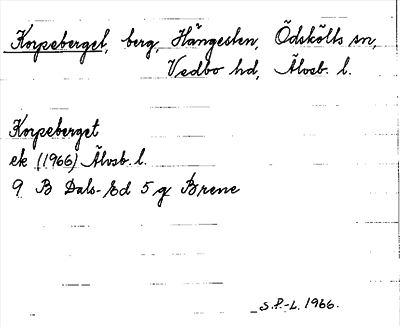 Korpeberget, berg, Hängesten, Ödskölts sn,
Vedbo hd, Älvsb. l.
Korpeberget
ek (1966) Älvsb. l.
9 B Dals-Ed 5 g Brene
S.P.-L. 1966.